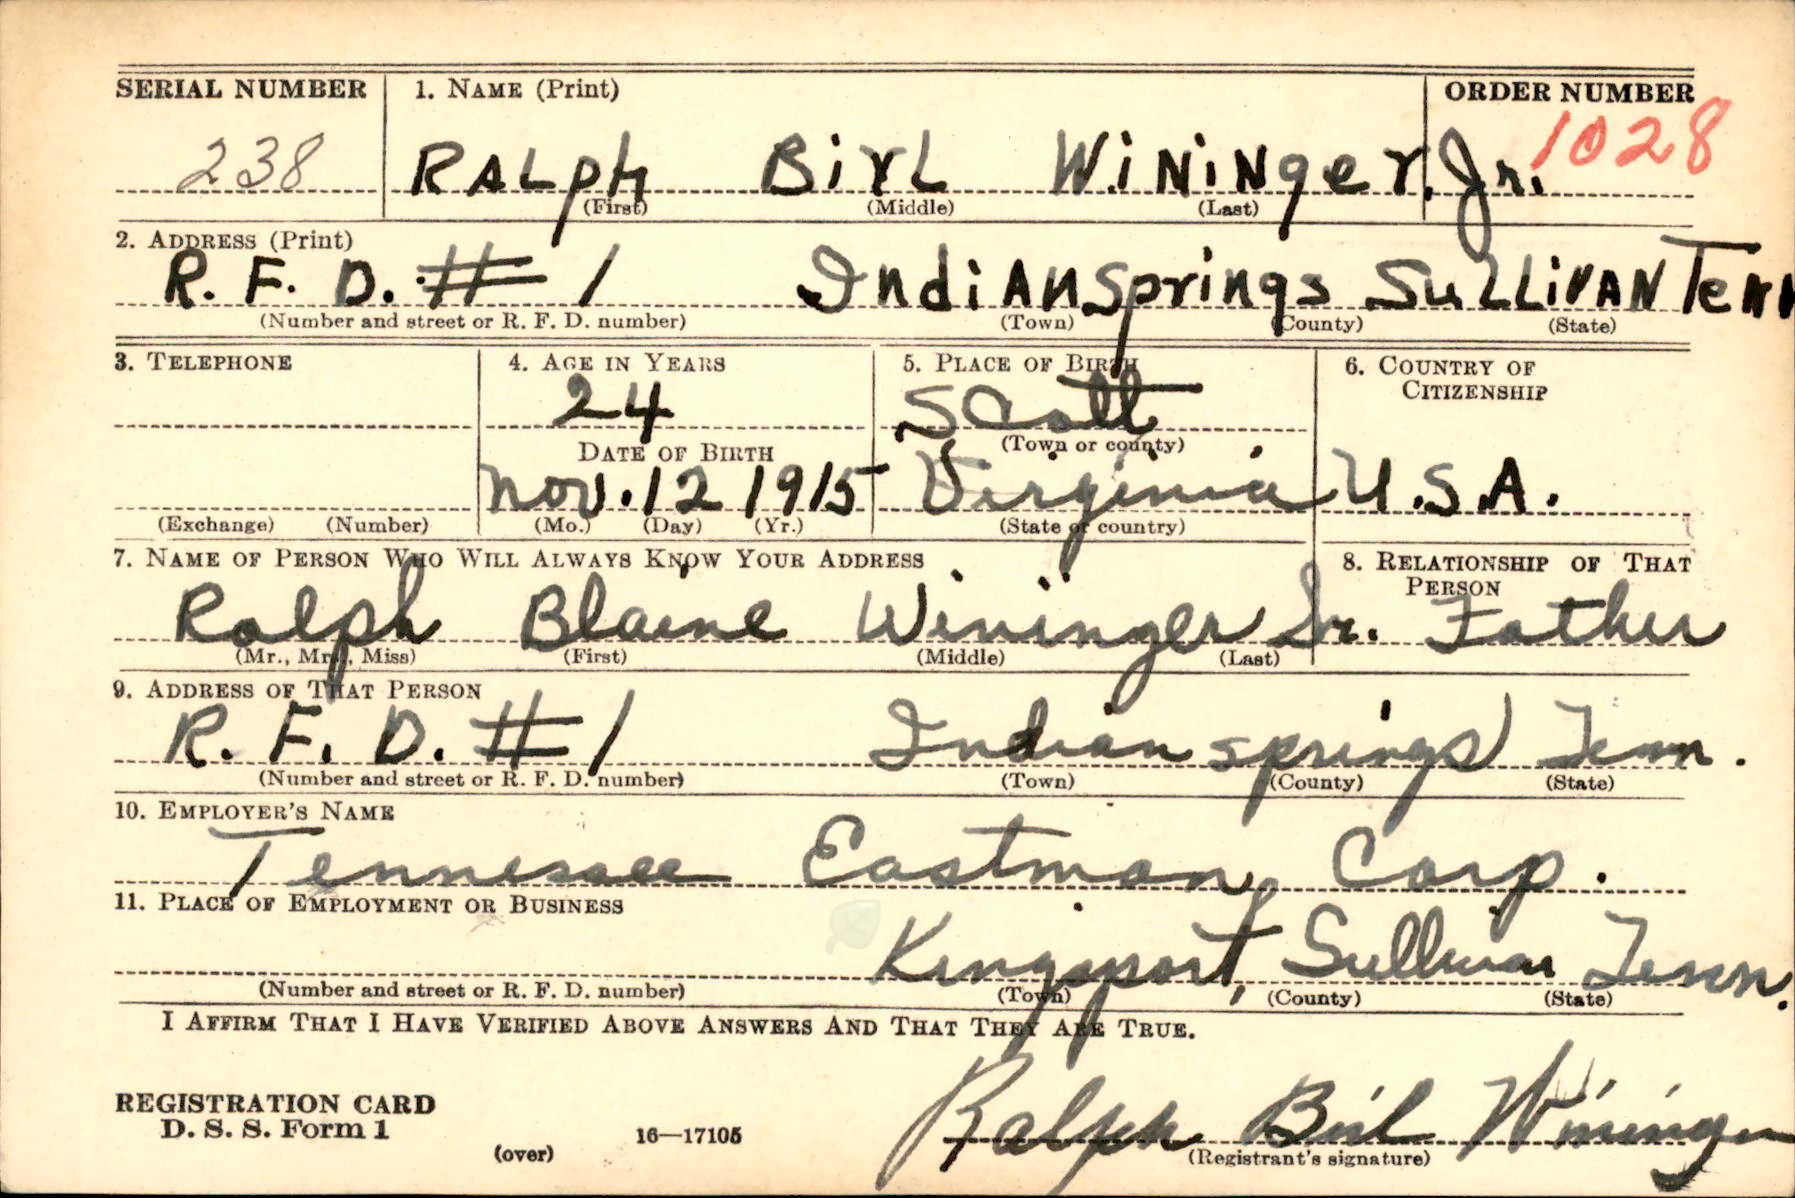 SERIAL NUMBER 1. NAME (Print) ORDER NUMBER
238 RALph BirL WiNiNger, Jr. 1028
(First) (Middle) (Last)
2. ADDRESS (Print)
R. F. D. # 1 IndiAn Springs SuLLiVAN Tenn
(Number and street or R. F. D. number) (Town) (County) (State)
3. TELEPHONE 4. AGE IN YEARS 5. PLACE OF BIRTH 6. COUNTRY OF
CITIZENSHIP
24 Scott
DATE OF BIRTH (Town or county)
Nov. 12 1915 Virginia U.S.A.
(Exchange) (Number) (Mo.) (Day) (Yr.) (State or country)
7. NAME OF PERSON WHO WILL ALWAYS KNOW YOUR ADDRESS 8. RELATIONSHIP OF THAT
PERSON
Ralph Blaine Wininger Sr. Father
(Mr., Mrs., Miss) (First) (Middle) (Last)
9. ADDRESS OF THAT PERSON
R. F. D. # 1 Indian springs Tenn.
(Number and street or R. F. D. number) (Town) (County) (State)
10. EMPLOYER'S NAME
Tennessee Eastman Corp.
11. PLACE OF EMPLOYMENT OR BUSINESS
Kingsport, Sullivan Tenn.
(Number and street or R. F. D. number) (Town) (County) (State)
I AFFIRM THAT I HAVE VERIFIED ABOVE ANSWERS AND THAT THEY ARE TRUE.
REGISTRATION CARD
D. S. S. Form 1
(over) 16—17105
Ralph Birl Wininger
(Registrant's signature)